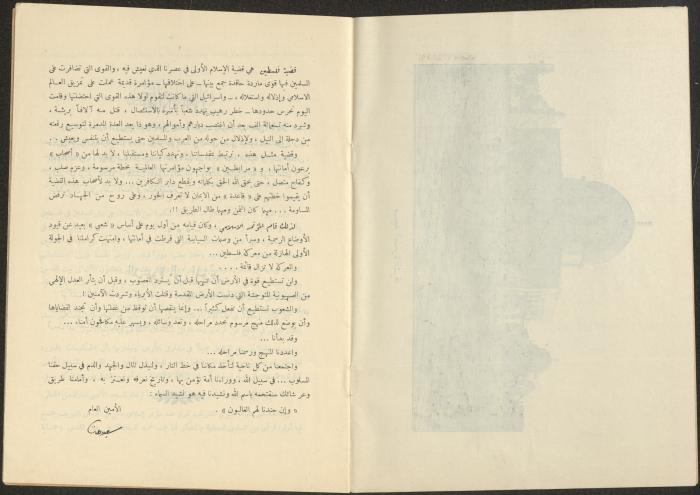 قضية فلسطين هي قضية الإسلام الأولى في عصرنا الذي نعيش فيه ، والقوى التي تضافرت على
المسلمين فيها قوى ماردة حاقدة جمع بينها ــ على اختلافها ــ مؤامرة قديمة عملت على تمزيق العالم
الاسلامي وإذلاله واستغلاله . ــ واسرائيل التي ما كانت لتقوم لولا هذه القوى التي احتضنتها وقامت
اليوم تحرس حدودها ــ خطر رهيب يهدد شعباً بأسره بالاستئصال ، قتل منه آلافاً بريئة ،
وشرد منه تسعمائة الف بعد أن اغتصب ديارهم وأموالهم ، وهو ذا يعد العدة المدمرة لتوسيع رقعته
من دجلة الى النيل ، ولإذلال من حوله من العرب والمسلمين حتى يستطيع أن يتنفس ويعيش .
وقضية مثل هذه .. ترتبط بمقدساتنا ، وتهدد كياننا ومستقبلنا ، لا بد لها من « أصحاب »
يرعون أمانتها ، و « مرابطين » يواجهون مؤامرتها العالمية بخطة مرسومة ، وعزم صلب ،
وكفاح متصل ، حتى يحق الله الحق بكلماته ويقطع دابر الكافرين ... ولا بد لأصحاب هذه القضية
أن يقيموا خطتهم على « قاعدة » من الايمان لا تعرف الخور ، وعلى روح من الجهاد ترفض
المساومة ... مهما كان الثمن ومهما طال الطريق !!.
لذلك قام المؤتمر الاسلامي ، وكان قيامه من أول يوم على أساس « شعبي » بعيد عن قيود
الأوضاع الرسمية ، ومبرأ من وصمات السياسة التي فرطت في أمانتها ، وامتهنت كرامتنا في الجولة
الأولى الهازلة من معركة فلسطين ...
والمعركة لا تزال قائمة . . . .
ولن تستطيع قوة في الأرض أن تنهيها قبل أن يسترد المغصوب ، وقبل أن يثأر العدل الإلهي
من الصهيونية المتوحشة التي دنست الأرض المقدسة وقتلت الأبرياء وشردت الآمنين !
والشعوب تستطيع أن تفعل كثيراً ... وإنما ينقصها أن توقظ من غفلتها وأن تجند لقضاياها
وأن يوضع لذلك منهج مرسوم تحدد مراحله ، وتعد وسائله ، ويسهر عليه مكافحون أمناء ...
وقد بدأنا ...
واعددنا المنهج ورسمنا مراحله ...
واجتمعنا من كل ناحية لنأخذ مكاننا في خط النار ، ولنبذل المال والجهد والدم في سبيل حقنا
المسلوب .. في سبيل الله ، ووراءنا أمة نؤمن بها ، وتاريخ نعرفه ونعتز به ، وأمامنا طريق
وعر شائك سنقتحمه باسم الله ونشيدنا فيه هو نشيد السماء :
« وإن جندنا لهم الغالبون » .
الأمين العام